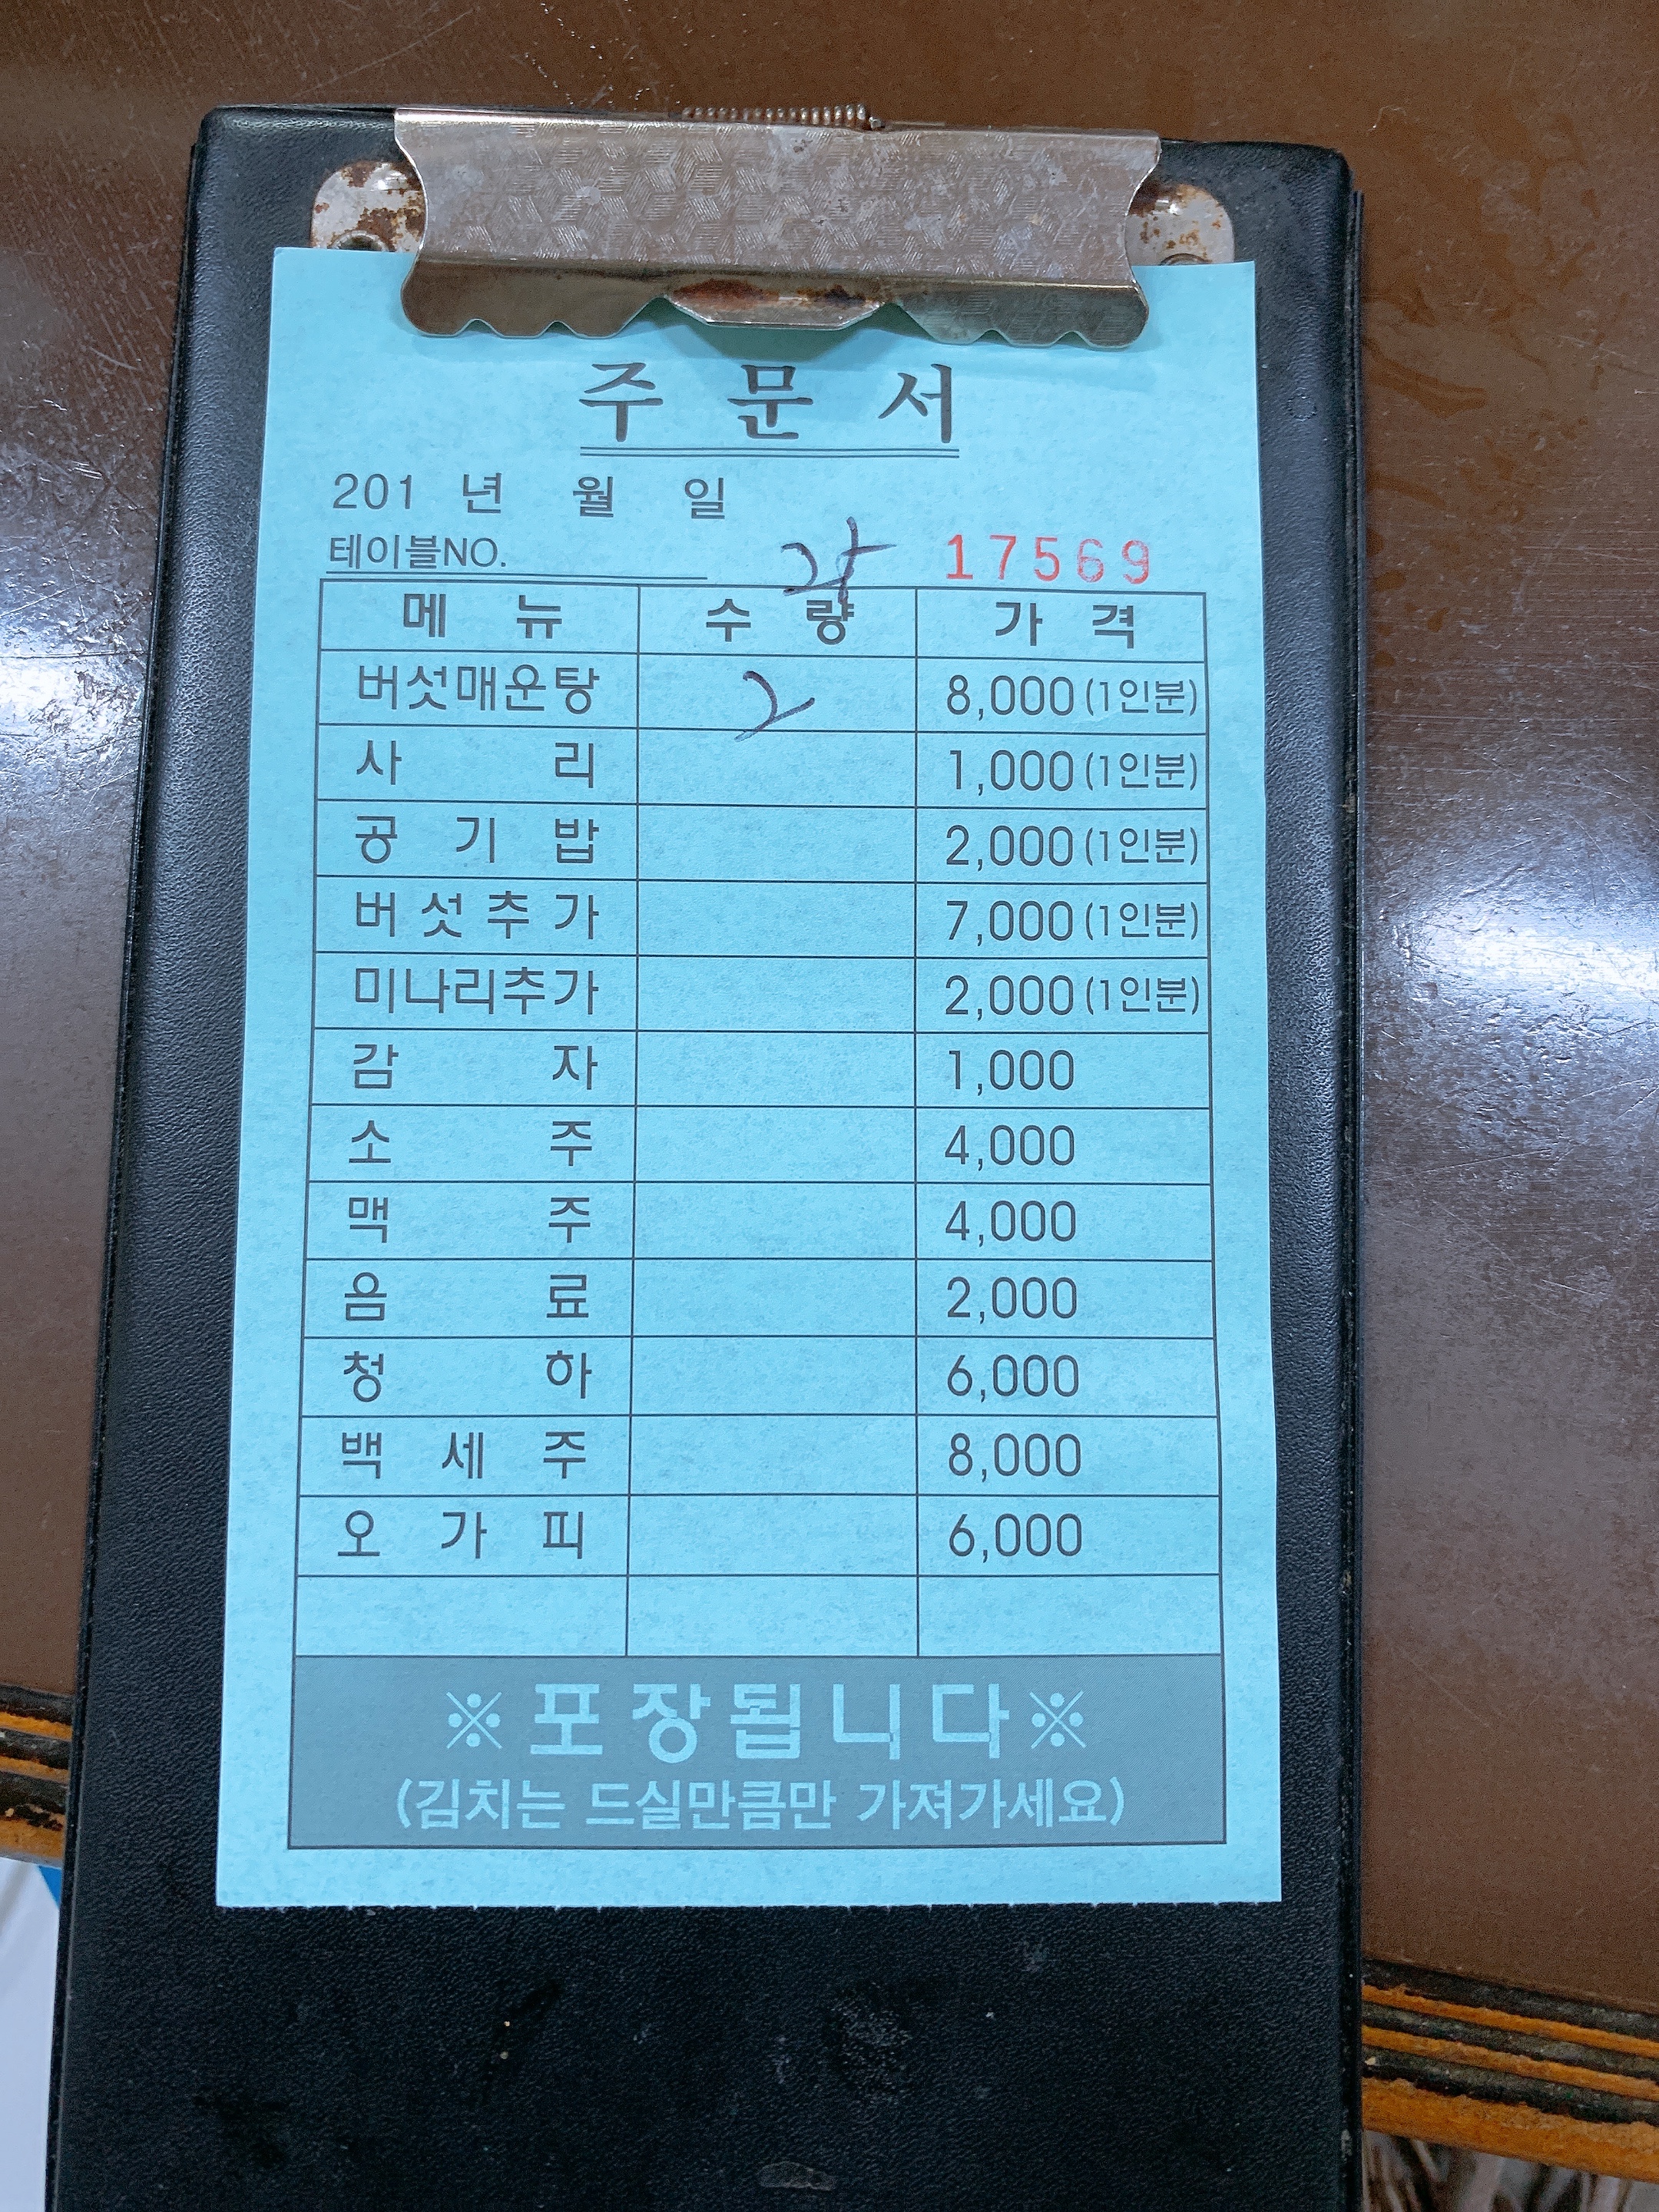 주문서
201 년 월 일
테이블NO. 17569
메뉴 수량 가격
버섯매운탕 2 8,000 (1인분)
사리 1,000 (1인분)
공기밥 2,000 (1인분)
버섯추가 7,000 (1인분)
미나리추가 2,000 (1인분)
감자 1,000
소주 4,000
맥주 4,000
음료 2,000
청하 6,000
백세주 8,000
오가피 6,000
※포장됩니다※
(김치는 드실만큼만 가져가세요)